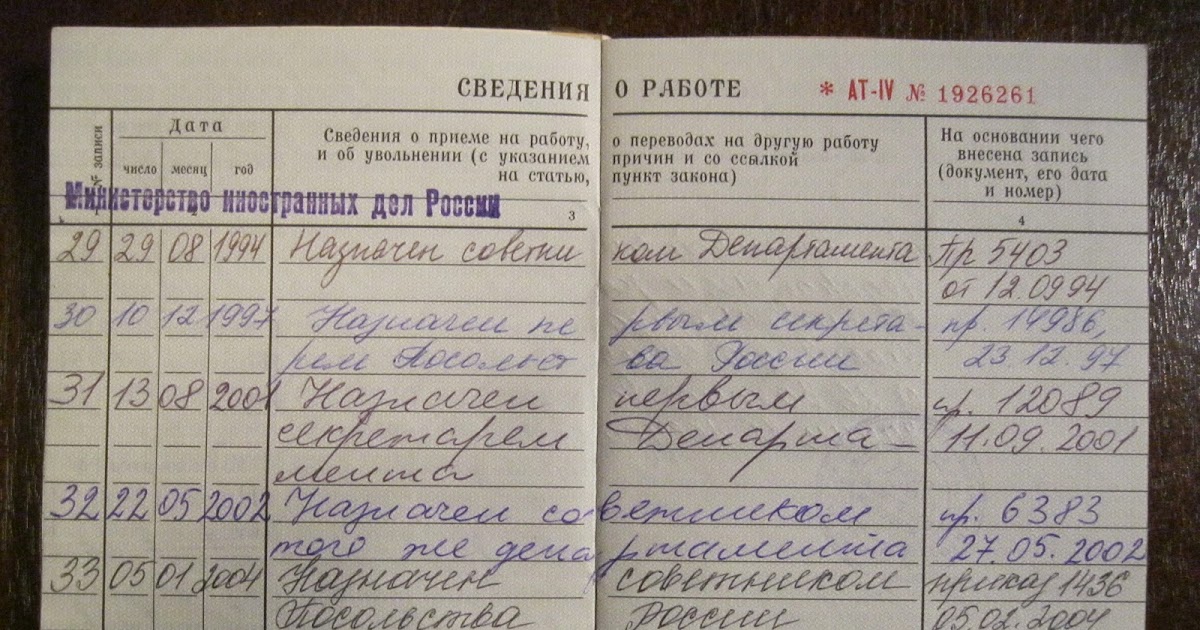 СВЕДЕНИЯ О РАБОТЕ * АТ-IV № 1926261
№ записи
Дата
число месяц год
Сведения о приеме на работу, о переводах на другую работу
и об увольнении (с указанием причин и со ссылкой
на статью, пункт закона)
На основании чего
внесена запись
(документ, его дата
и номер)
Министерство иностранных дел России
3 4
29 29 08 1994 Назначен советником Департамента Пр 5403
от 12.0994
30 10 12 1997 Назначен первым секрета- пр. 14986,
рем Посольства России 23.12.97
31 13 08 2001 Назначен первым пр. 12089
секретарем Департа- 11.09.2001
мента
32 22 05 2002 Назначен советником пр. 6383
того же департамента 27.05.2002
33 05 01 2004 Назначен советником приказ 1436
Посольства России 05.02.2004